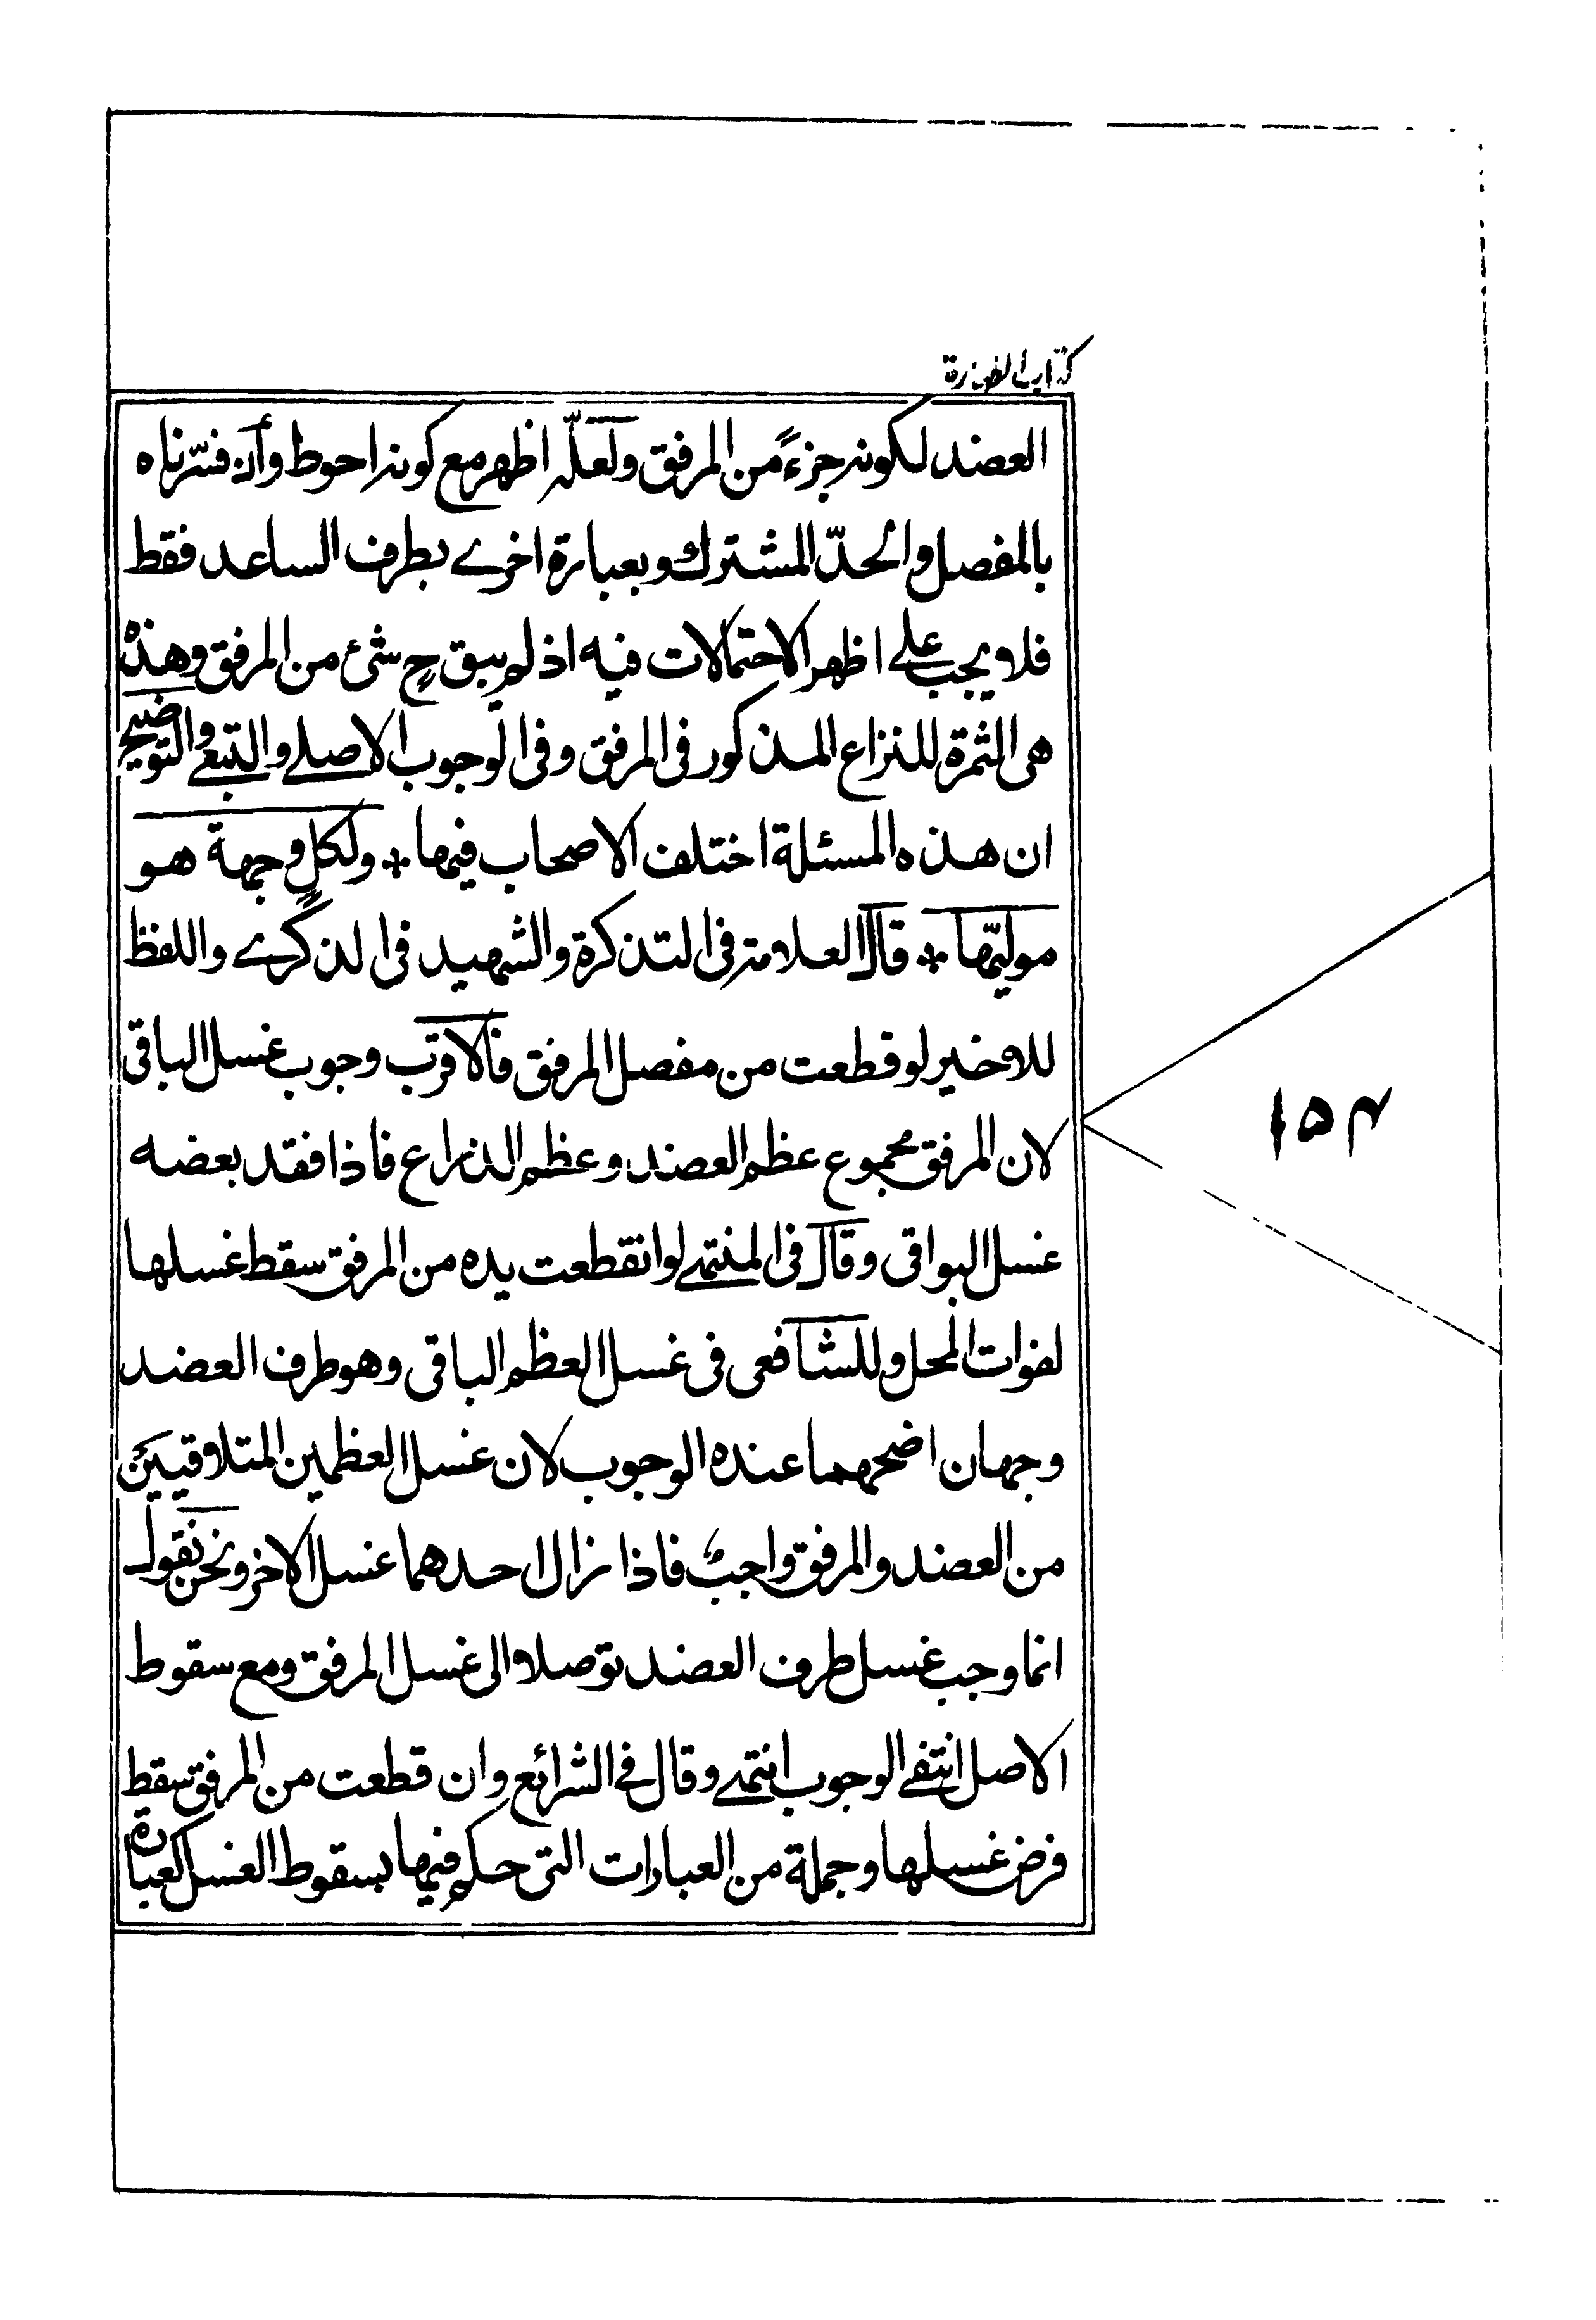 كتاب الطهارة
العضد لكونه جزءً من المرفق ولعلّه اظهر مع كونه احوط وأن فسّرناه
بالمفصل والحدّ المشترك وبعبارة اخرے بطرف الساعد فقط
فلا ويجب علے اظهر الاحتمالات فيه اذ لم يبق ح شئ من المرفق وهذه
هى الثمرة للنزاع المذكور فى المرفق وفى الوجوب الاصلے والتبعے والتوضيح
ان هذه المسئلة اختلف الاصحاب فيها * ولكلٍ وجهة هو
موليّها * قال العلامة فى التذكرة والشهيد فى الذكرے واللفظ
للاخير لو قطعت من مفصل المرفق فالاقرب وجوب غسل الباقى
لان المرفق مجموع عظم العضد وعظم الذراع فاذا فقد بعضه
غسل البواقى وقال فى المنتهے لو انقطعت يده من المرفق سقط غسلها
لفوات المحل وللشافعى فى غسل العظم الباقى وهو طرف العضد
وجهان اضحهما عنده الوجوب لان غسل العظمين المتلاقيين
من العضد والمرفق واجب فاذا زال احدهما غسل الاخر ونحن نقول
انما وجب غسل طرف العضد توصلا الى غسل المرفق ومع سقوط
الاصل انتفے الوجوب انتهے وقال فے الشرائع وان قطعت من المرفق سقط
فرض غسلها وجملة من العبارات التى حكم فيها بسقوط الغسل كعبارة
۱۵۴